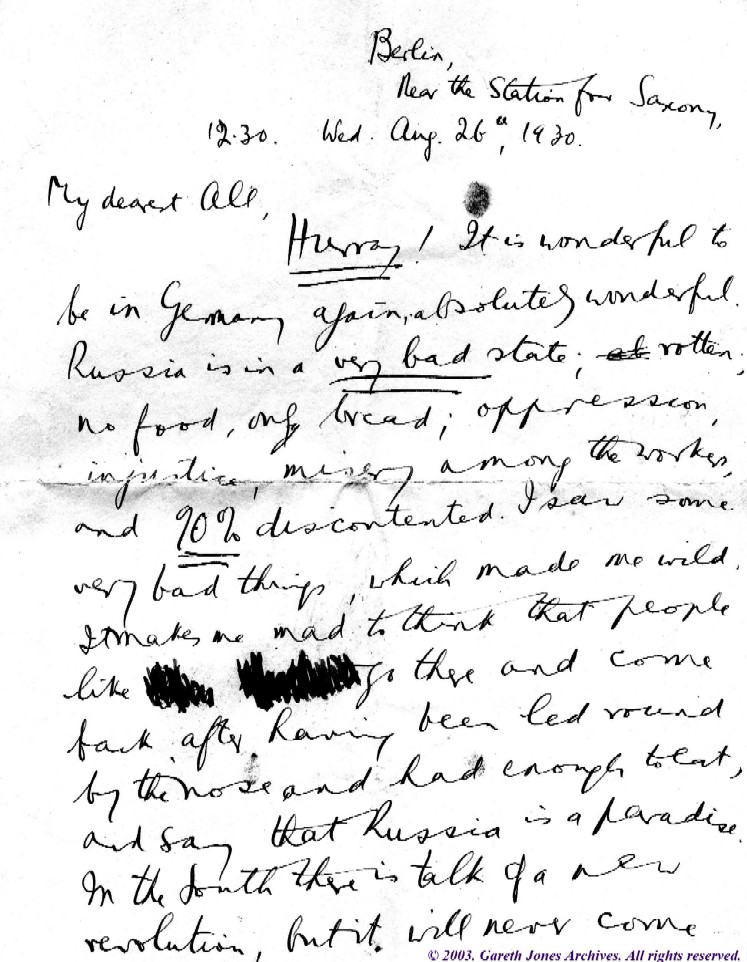 Berlin,
Near the Station for Saxony,
12.30. Wed. Aug. 26th, 1930.
My dearest All,
Hurray! It is wonderful to
be in Germany again, absolutely wonderful.
Russia is in a very bad state; rotten,
no food, only bread; oppression,
injustice, misery among the workers,
and 90% discontented. I saw some
very bad things, which made me wild.
It makes me mad to think that people
like go there and come
back, after having been led round
by the nose and had enough to eat,
and say that Russia is a paradise.
In the South there is talk of a new
revolution, but it will never come
© 2003. Gareth Jones Archives. All rights reserved.